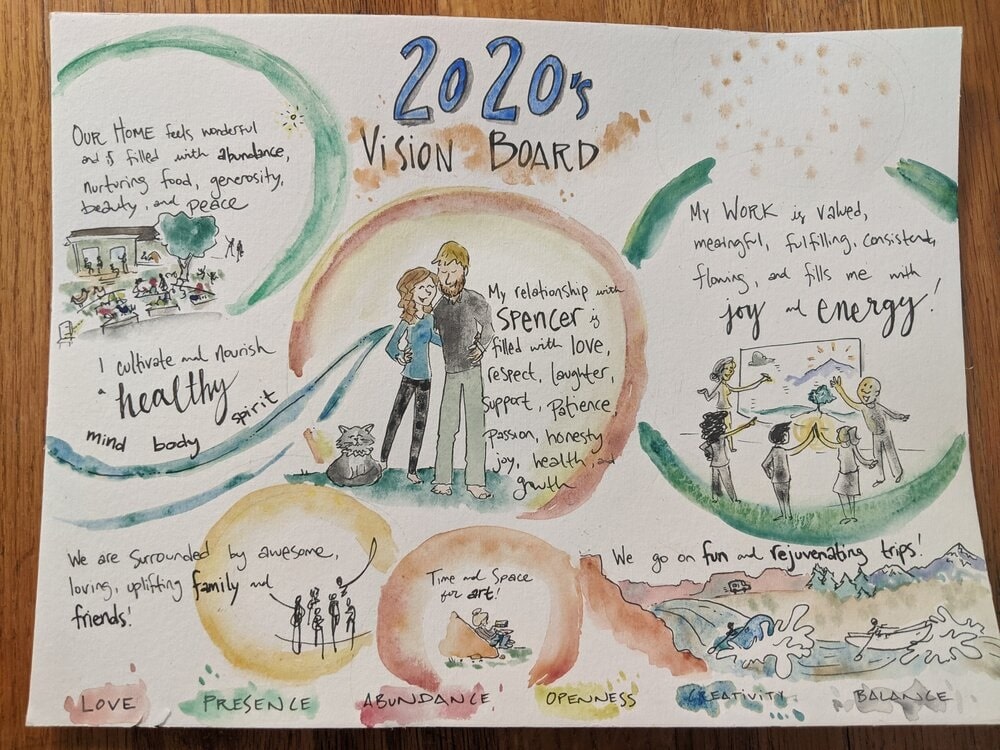 2020's
VISION BOARD
OUR HOME feels wonderful
and is filled with abundance,
nurturing food, generosity,
beauty, and peace
I cultivate and nourish
a healthy
mind body spirit
My relationship with
SPENCER is
filled with love,
respect, laughter,
support, patience,
passion, honesty
joy, health, and
growth
My WORK is valued,
meaningful, fulfilling, consistent,
flowing, and fills me with
joy and energy!
We are surrounded by awesome,
loving, uplifting family and
friends!
Time and Space
for art!
We go on fun and rejuvenating trips!
LOVE PRESENCE ABUNDANCE OPENNESS CREATIVITY BALANCE